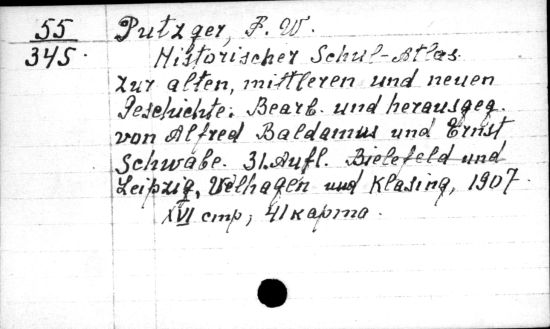 55 Putzger, F. W.
345. Historischer Schul-Atlas
zur alten, mittleren und neuen
Geschichte. Bearb. und herausgeg.
von Alfred Baldamus und Ernst
Schwabe. 31. Aufl. Bielefeld und
Leipzig, Velhagen und Klasing, 1907.
XVI стр; 41 карта.